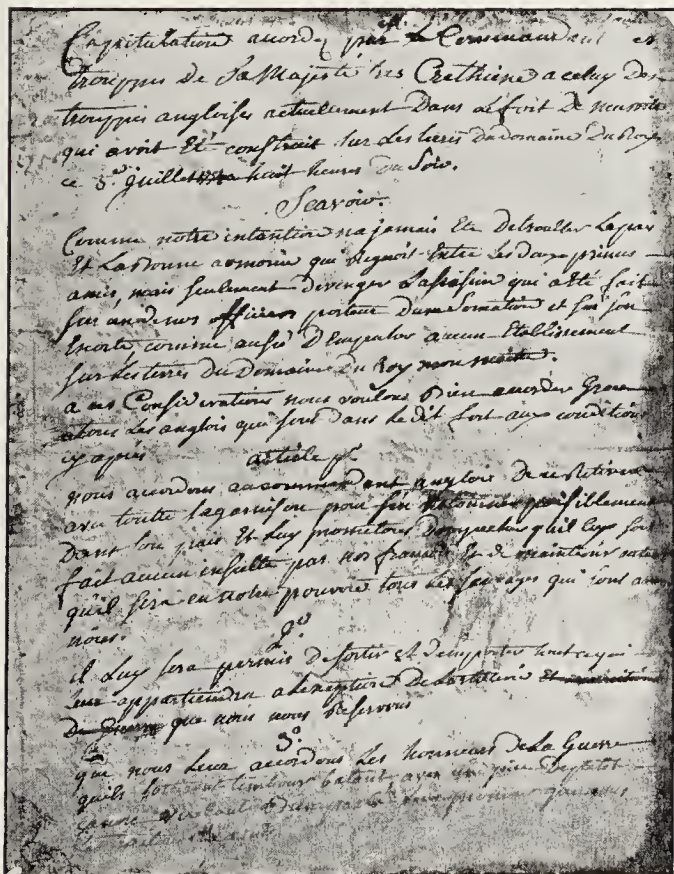 Capitulation accordez par Mr. le Commandant et
trouppes De Sa Majesté tres Crethiene a celuy des
trouppes angloises actuellement Dans Le fort De necessité
qui avoit Eté construit sur Les terres du domaine Du Roy
ce 3e. Juillet a huit heures Du Soir.
Scavoir.
Comme notre intention na jamais Eté De troubler La paix
Et La Bonne armonie qui regnoit Entre Les deux princes
amis, mais seulement De venger Lassassin qui a Eté fait
sur un de nos officier porteur Dune Somation et sur son
Escorte, comme aussy D'Empecher aucun Etablissement
sur Les terres du Domaine Du Roy mon maitre.
a ces Considerations nous voulons Bien accorder Grace
a tous Les anglois qui sont dans Le dit fort aux conditions
cy apres
article pr.
nous accordons au commandant anglois De se Retirer
avec toutte Sa garnison pour s'en Retourner paisiblement
Dans son pais Et Luy promettons D'empecher qu'il luy soit
fait aucun insulte par nos francois Et de maintenir
qu'il sera en notre pouvoir tous Les sauvages qui sont avec
nous.
2e.
il Luy sera permis De sortir Et d'emporter tout ce qui
leur appartiendra a Lexeption De Lartillerie Et munitions
De Guerre que nous nous Reservons
3e.
que nous Leur accordons Les honneurs De La Guerre
quils sortiront tambour batant avec une piece De petit
canon